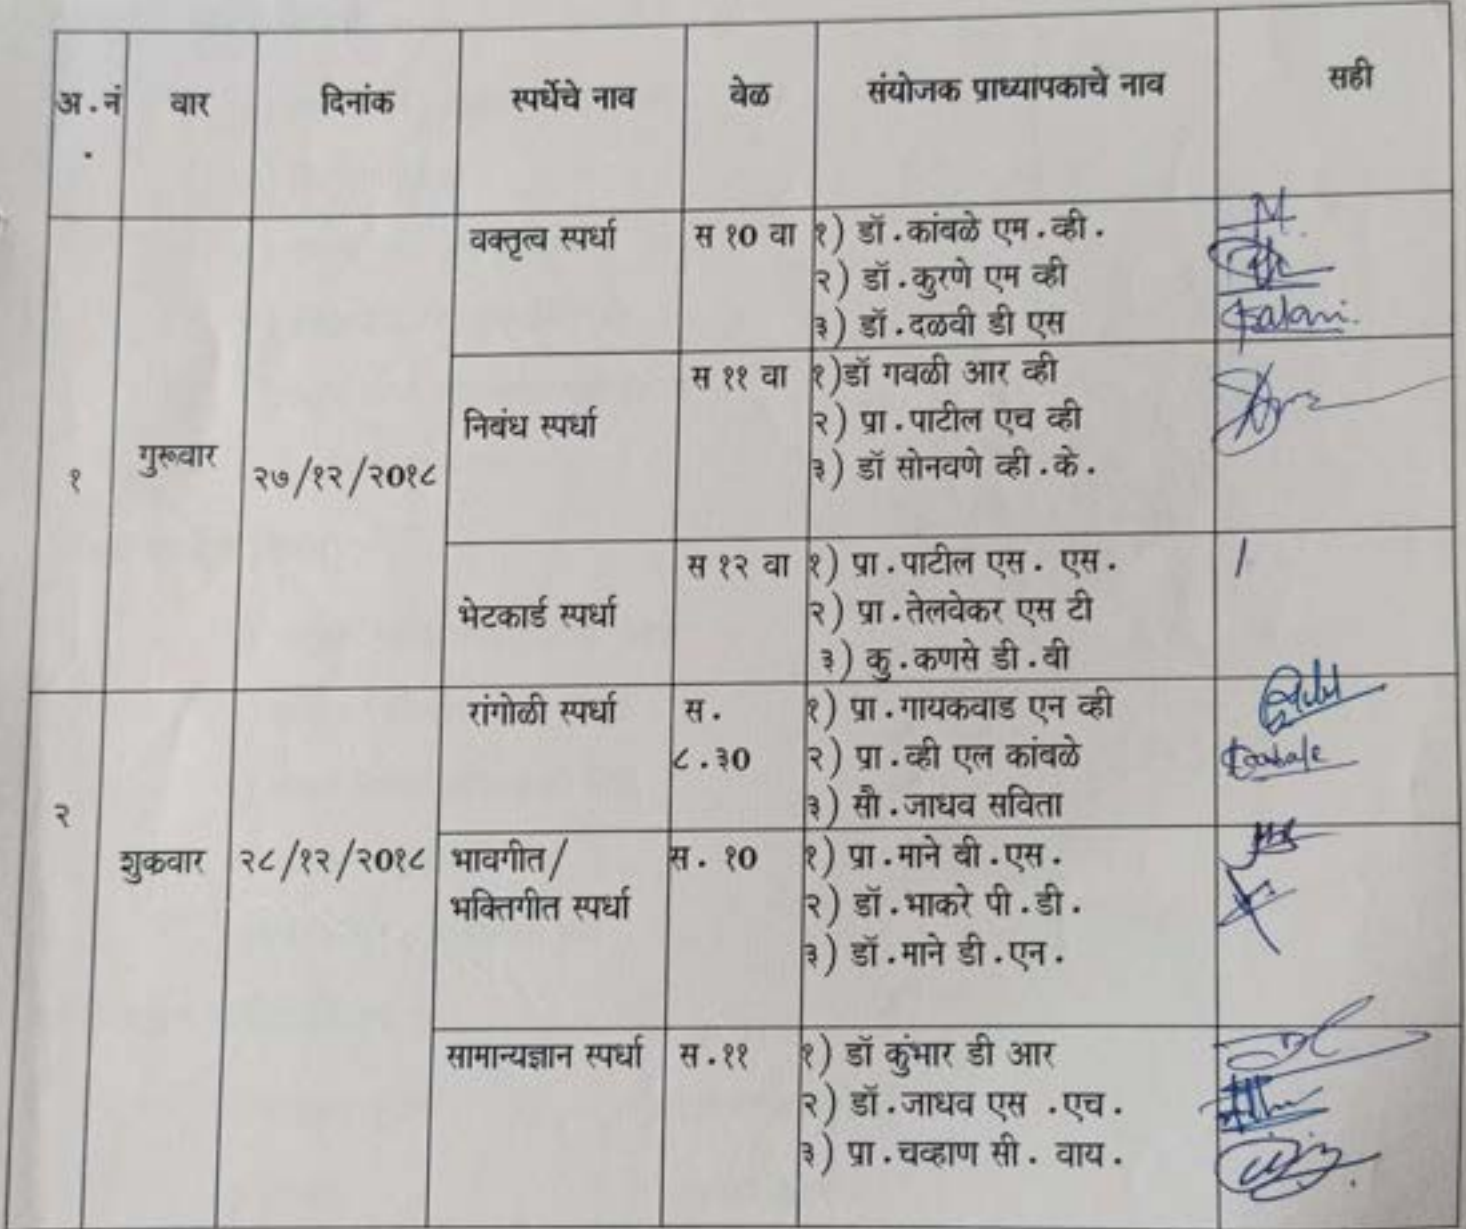 अ.नं. वार दिनांक स्पर्धेचे नाव वेळ संयोजक प्राध्यापकाचे नाव सही
१ गुरूवार २७/१२/२0१८
वक्तृत्व स्पर्धा स १0 वा १) डॉ.कांबळे एम.व्ही.
२) डॉ.कुरणे एम व्ही
३) डॉ.दळवी डी एस
निबंध स्पर्धा स ११ वा १)डॉ गवळी आर व्ही
२) प्रा.पाटील एच व्ही
३) डॉ सोनवणे व्ही.के.
भेटकार्ड स्पर्धा स १२ वा १) प्रा.पाटील एस. एस.
२) प्रा.तेलवेकर एस टी
३) कु.कणसे डी.वी
२ शुक्रवार २८/१२/२0१८
रांगोळी स्पर्धा स. १) प्रा.गायकवाड एन व्ही
८.३0 २) प्रा.व्ही एल कांबळे
३) सौ.जाधव सविता
भावगीत/ स. १0 १) प्रा.माने बी.एस.
भक्तिगीत स्पर्धा २) डॉ.भाकरे पी.डी.
३) डॉ.माने डी.एन.
सामान्यज्ञान स्पर्धा स.११ १) डॉ कुंभार डी आर
२) डॉ.जाधव एस .एच.
३) प्रा.चव्हाण सी. वाय.